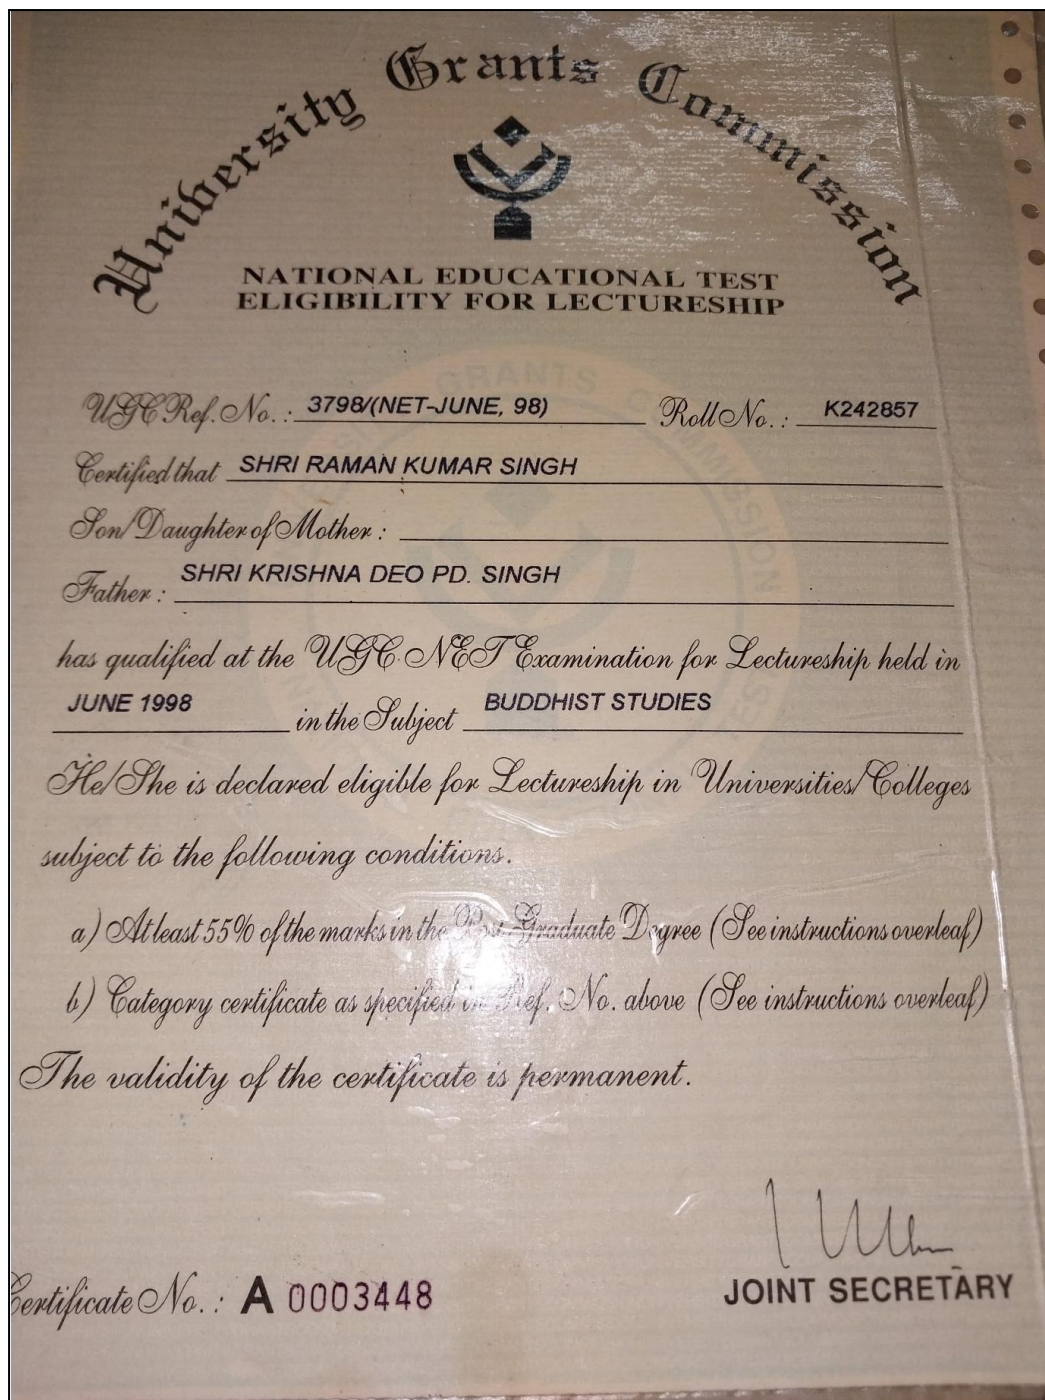 University Grants Commission
NATIONAL EDUCATIONAL TEST
ELIGIBILITY FOR LECTURESHIP
UGC Ref. No. : 3798/(NET-JUNE, 98) Roll No. : K242857
Certified that SHRI RAMAN KUMAR SINGH
Son/Daughter of Mother :
Father : SHRI KRISHNA DEO PD. SINGH
has qualified at the UGC NET Examination for Lectureship held in
JUNE 1998 in the Subject BUDDHIST STUDIES
He/She is declared eligible for Lectureship in Universities/Colleges
subject to the following conditions.
a) At least 55% of the marks in the Post Graduate Degree (See instructions overleaf)
b) Category certificate as specified in Ref. No. above (See instructions overleaf)
The validity of the certificate is permanent.
Certificate No. : A 0003448
JOINT SECRETARY